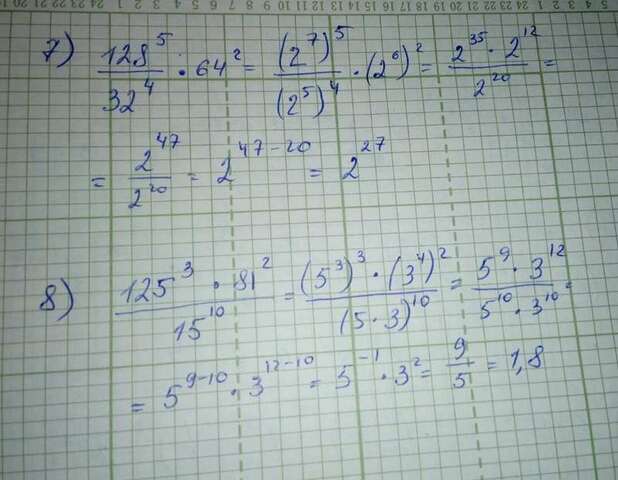 7) 128⁵/32⁴ · 64² = (2⁷)⁵/(2⁵)⁴ · (2⁶)² = 2³⁵ · 2¹²/2²⁰ =
= 2⁴⁷/2²⁰ = 2⁴⁷⁻²⁰ = 2²⁷
8) 125³ · 81²/15¹⁰ = (5³)³ · (3⁴)²/(5 · 3)¹⁰ = 5⁹ · 3¹²/5¹⁰ · 3¹⁰ =
= 5⁹⁻¹⁰ · 3¹²⁻¹⁰ = 5⁻¹ · 3² = 9/5 = 1,8